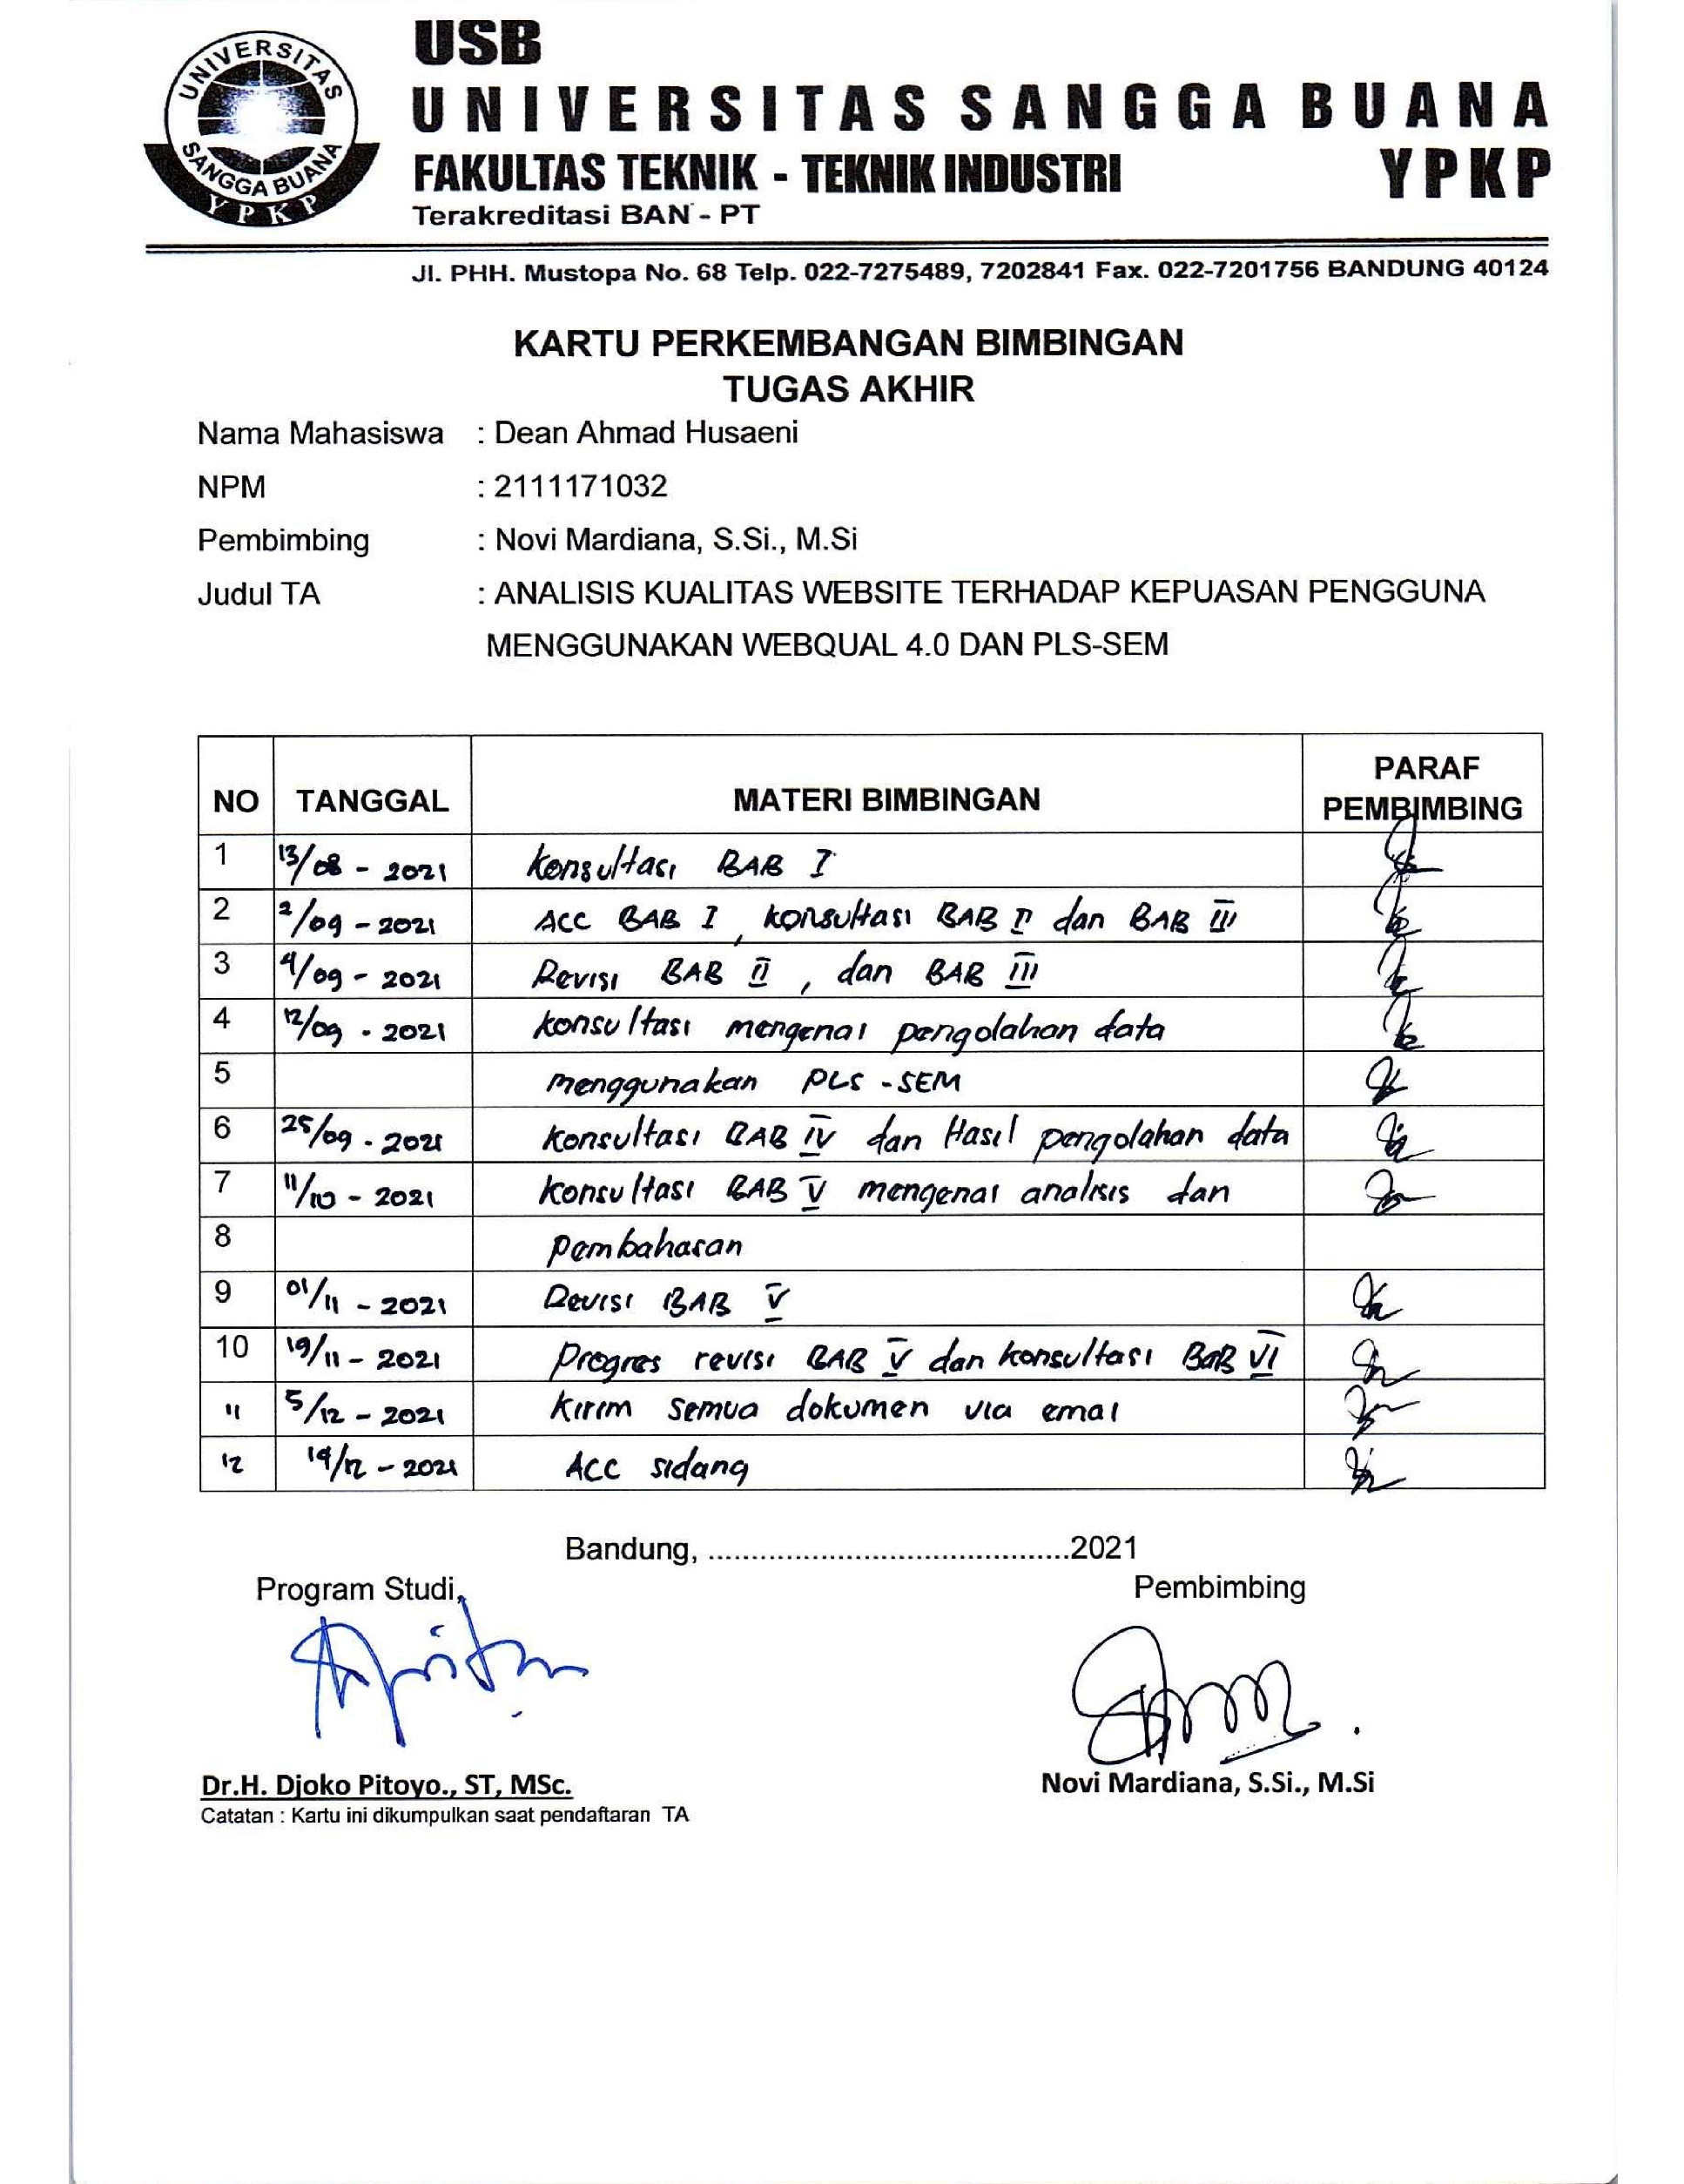 UNIVERSITAS
SANGGA BUANA
YPKP
USB
UNIVERSITAS SANGGA BUANA
FAKULTAS TEKNIK - TEKNIK INDUSTRI YPKP
Terakreditasi BAN - PT
Jl. PHH. Mustopa No. 68 Telp. 022-7275489, 7202841 Fax. 022-7201756 BANDUNG 40124
KARTU PERKEMBANGAN BIMBINGAN
TUGAS AKHIR
Nama Mahasiswa : Dean Ahmad Husaeni
NPM : 2111171032
Pembimbing : Novi Mardiana, S.Si., M.Si
Judul TA : ANALISIS KUALITAS WEBSITE TERHADAP KEPUASAN PENGGUNA
MENGGUNAKAN WEBQUAL 4.0 DAN PLS-SEM
NO TANGGAL MATERI BIMBINGAN PARAF PEMBIMBING
1 13/08 - 2021 Konsultasi BAB I
2 2/09 - 2021 ACC BAB I, konsultasi BAB II dan BAB III
3 4/09 - 2021 Revisi BAB II, dan BAB III
4 12/09 - 2021 konsultasi mengenai pengolahan data
5 menggunakan PLS - SEM
6 25/09 - 2021 Konsultasi BAB IV dan Hasil pengolahan data
7 11/10 - 2021 Konsultasi BAB V mengenai analisis dan
8 pembahasan
9 01/11 - 2021 Revisi BAB V
10 19/11 - 2021 Progres revisi BAB V dan konsultasi BaB VI
11 5/12 - 2021 Kirim semua dokumen via emai
12 14/12 - 2021 ACC sidang
Bandung, ..........................................2021
Program Studi, Pembimbing
Dr.H. Djoko Pitoyo., ST, MSc. Novi Mardiana, S.Si., M.Si
Catatan : Kartu ini dikumpulkan saat pendaftaran TA